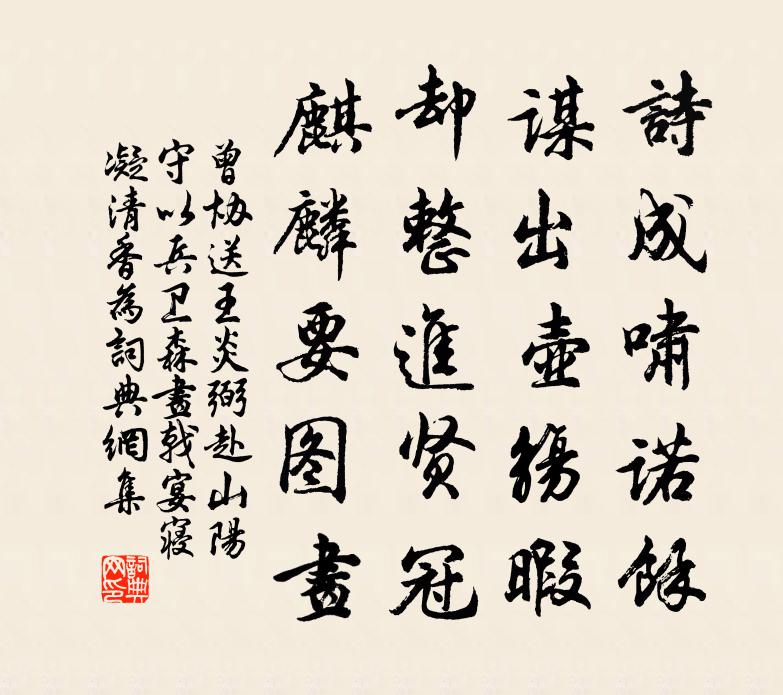 詩成啸诺餘
謀出壺觴暇
却整進贤冠
麒麟要图畫
曾协送王炎弼赴山陽
守以兵卫森畫戟宴寝
凝清香為詞典網集
詞典
网印